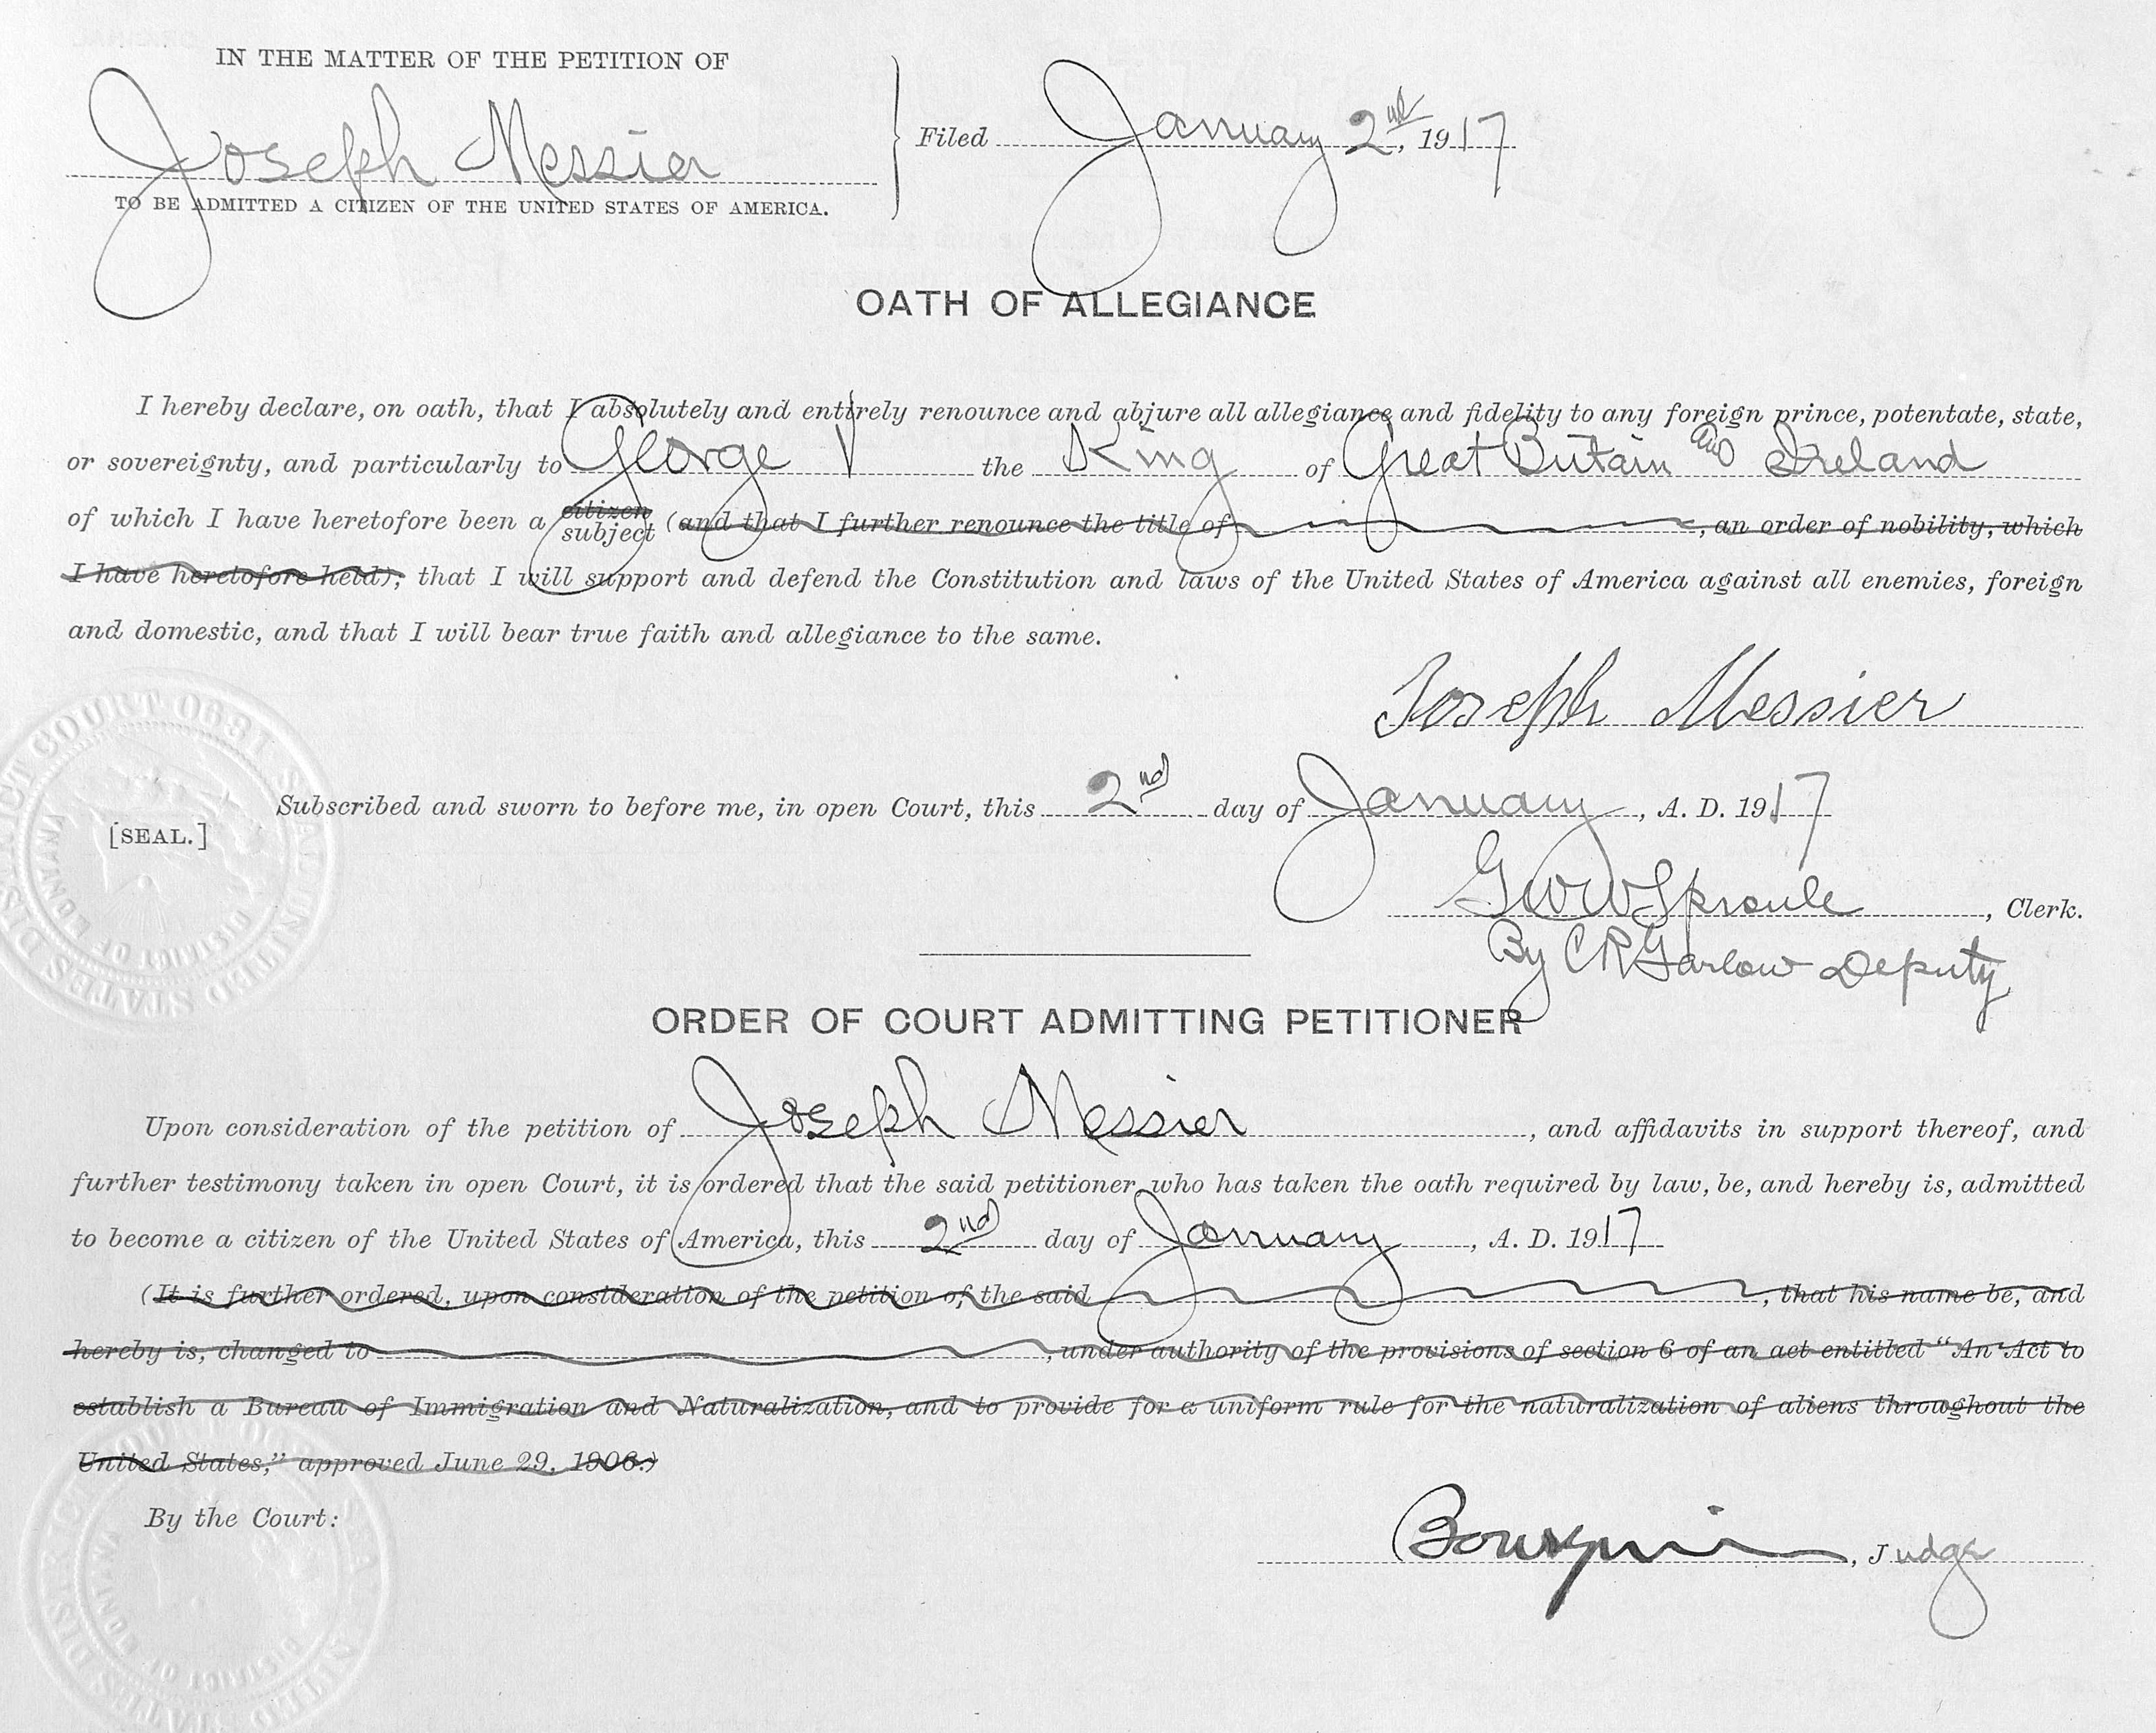 IN THE MATTER OF THE PETITION OF
Joseph Messier
TO BE ADMITTED A CITIZEN OF THE UNITED STATES OF AMERICA.
Filed January 2nd, 1917
OATH OF ALLEGIANCE
I hereby declare, on oath, that I absolutely and entirely renounce and abjure all allegiance and fidelity to any foreign prince, potentate, state,
or sovereignty, and particularly to George V the King of Great Britain and Ireland
of which I have heretofore been a citizen subject (and that I further renounce the title of , an order of nobility, which
I have heretofore held); that I will support and defend the Constitution and laws of the United States of America against all enemies, foreign
and domestic, and that I will bear true faith and allegiance to the same.
Joseph Messier
Subscribed and sworn to before me, in open Court, this 2nd day of January, A. D. 1917
[SEAL.]
UNITED STATES DISTRICT COURT SEAL
DISTRICT OF MONTANA
Geo W Sproule, Clerk.
By C R Garlow Deputy
ORDER OF COURT ADMITTING PETITIONER
Upon consideration of the petition of Joseph Messier, and affidavits in support thereof, and
further testimony taken in open Court, it is ordered that the said petitioner, who has taken the oath required by law, be, and hereby is, admitted
to become a citizen of the United States of America, this 2nd day of January, A. D. 1917
(It is further ordered, upon consideration of the petition of the said , that his name be, and
hereby is, changed to , under authority of the provisions of section 6 of an act entitled "An Act to
establish a Bureau of Immigration and Naturalization, and to provide for a uniform rule for the naturalization of aliens throughout the
United States," approved June 29, 1906.)
By the Court:
Bourquin, Judge
DISTRICT OF MONTANA